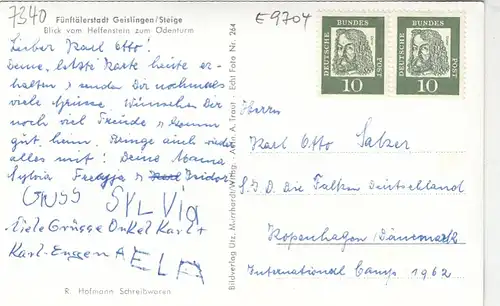 7340
E9704
Fünftälerstadt Geislingen/Steige
Blick vom Helfenstein zum Ödenturm
Lieber Karl Otto!
Deine letzte Karte heute er-
halten, senden Dir nochmals
viele Grüsse. Wünschen Dir
noch viel Freude, komm
gut heim. Bringe auch wieder
alles mit! Deine Mama
Sylvia Isidor
GRUSS SYLVIA
Viele Grüsse Onkel Karl +
Karl-Eugen ELA
R. Hofmann Schreibwaren
Bildverlag Utz, Murrhardt/Wttbg. Echt Foto Nr. 264
DEUTSCHE BUNDES POST 10
DEUTSCHE BUNDES POST 10
Herrn
Karl Otto Salzer
S.J.D. Die Falken Deutschland
Kopenhagen/Dänemark
International Camp 1962